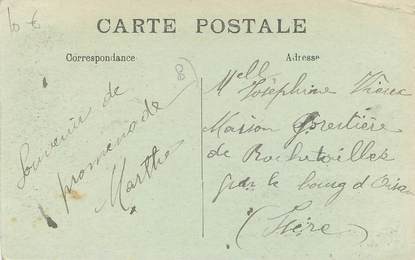 10 €
CARTE POSTALE
Correspondance
Adresse
Souvenir de
promenade
Marthe
Melle
Joséphine Vieux
Maison forestière
de Rochetaillée
par le bourg d'Oisans
(Isère)